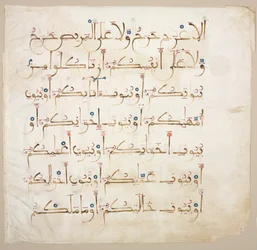 الاعرج حرج ولا على المريض حرج
ولا على انفسكم ان تاكلوا من
بيوتكم او بيوت ابائكم او بيوت
امهتكم او بيوت اخونكم او
بيوت اخوتكم او بيوت اعممكم
او بيوت عمتكم او بيوت اخولكم
او بيوت خلتكم او ما ملكتم